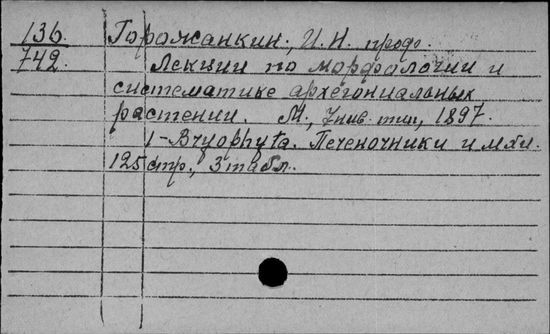 136 Горожанкин, И.Н. проф.
742 Лекции по морфологии и
систематике архегониальных
растений. М., Унив. тип, 1897.
1-Bryophyta. Печеночники и мхи.
125 стр., 3 табл.